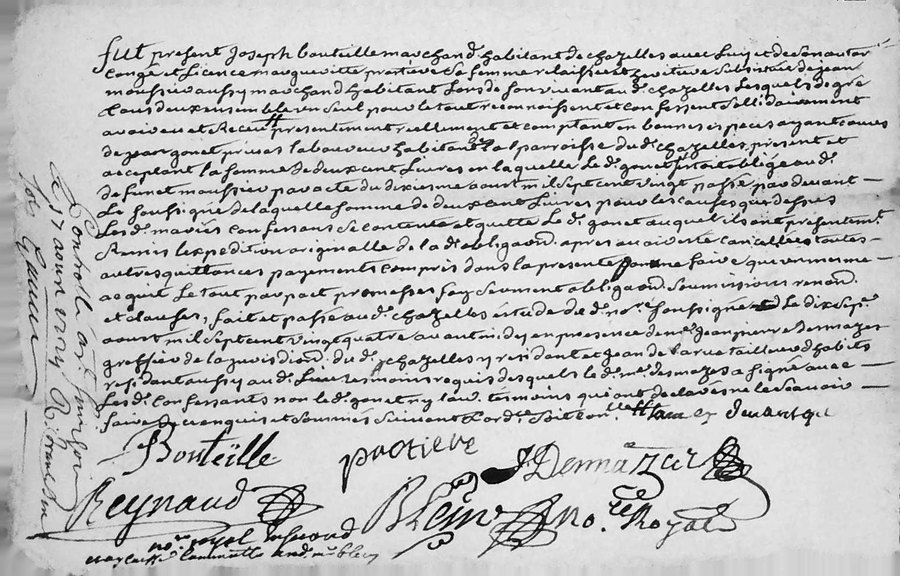 fut present Joseph bouteille marchand habitant de chazelles avec luy et de son autor
congé et Licence margueritte protiere sa femme relaissée et heritiere de jean
moussier aussy marchand habitant Lors de son vivant aud. chazelles Lesquels de gré
tous deux ensemble un seul pour le tout reconnoissent et confessent sollidairement
avoir eu et Receu presentement reellement et comptant en bonnes especes ayant cours
de jean gonet laboureur habitant la parroisse dud. chazelles present et
acceptant la somme de deux cent Livres en laquelle Led. gonet obligé aud.
defunct moussier par acte du dixiesme aoust mil sept cent vingt passé par devant
Le soussigné de laquelle somme de deux cent Livres pour les causes que dessus
Lesd. mariés confessans se contente et quitte Led. gonet auquel ils ont presentemt.
Remis lexpedition originalle de lad. obligaon. apres avoir esté cancellée toutes
autres quittances payements compris dans la presente ne faire que un mesme
acquit Le tout par pact promesses foy serment obligaon. soumissions renon.
et clauses, fait et passé aud. chazelles étude dud. nore. soussigné Le dix sept
aoust mil sept cent vingt quatre avant midy en presence de me. jean pierre denmazes
greffier de la jurisdion. dud. chazelles y residant et jean Larue tailleur d'habits
residant aussy aud. Lieu tesmoins requis desquels led. me. desmazes a signé avec
Lesd. Confessants non led. gonet ny law. tesmoins qui ont declaré ne le scavoir
faire de ce enquis et sommés suivant Lordce.
Bouteille
protiere
J Denmazes
Reynaud
Blein no.re Royal
no.re royal
Controllé a
ce 17 aoust 1724